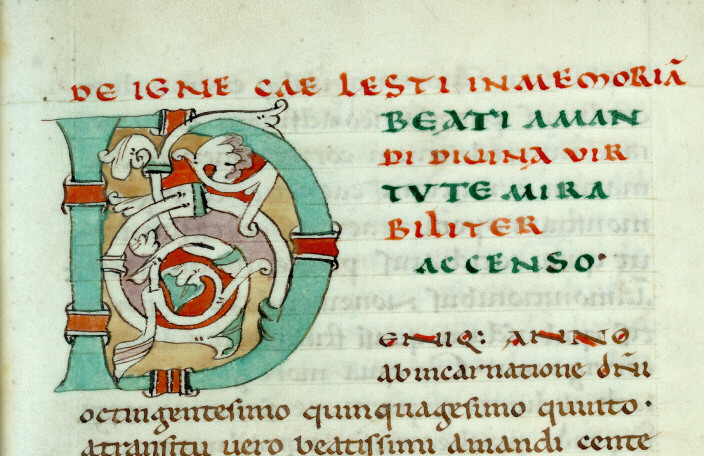 DE IGNE CAELESTI IN MEMORIĀ
BEATI AMAN
DI DIUINA UIR
TVTE MIRA
BILITER
ACCENSO·
DENIQ: ANNO
ab incarnatione dn̄i
octingentesimo quinquagesimo quinto·
atransitu uero beatissimi amandi cente